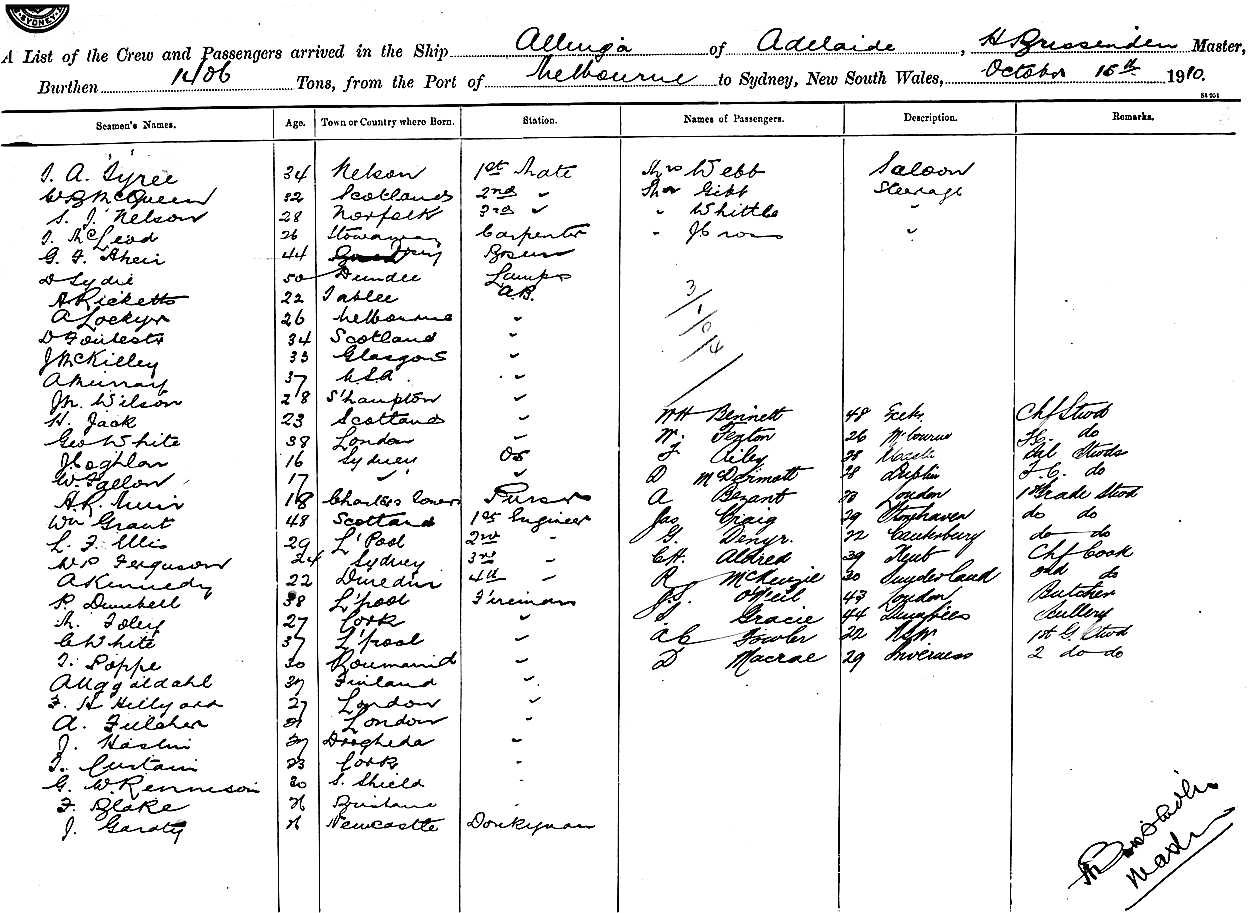 SYDNEY
A List of the Crew and Passengers arrived in the Ship Allinga of Adelaide, H Brissenden Master,
Burthen 1406 Tons, from the Port of Melbourne to Sydney, New South Wales, October 15th 1910.
Seamen's Names. Age. Town or Country where Born. Station. Names of Passengers. Description. Remarks.
J. A. Tyree 34 Nelson 1st Mate Mrs Webb Saloon
W McQueen 32 Scotland 2nd " Gibb Steerage
S. J. Nelson 28 Norfolk 3rd " " Whittle "
J. McLeod 26 Stornaway Carpenter " J Cross "
G. F. Aheir 44 Bosun
D Sydie 50 Dundee Lamps
A Ricketts 22 A.B.
A Lockyr 26 Melbourne "
D 34 Scotland "
J McKilley 33 Glasgow "
A Murray 37 U.S.A. "
Jn. Wilson 28 S'hampton "
H. Jack 23 Scotland " WH Bennett 48 Chf Stwd
Geo White 38 London " W. Fenton 26 Melbourne do
J Coghlan 16 Sydney OS F Riley 28 Stwds
W. Fallon 17 " D McDermott 28 Dublin do
A R. Muir 18 Charters Towers Purser A Bezant 20 London 1st Grade Stwd
Wm Grant 48 Scotland 1st Engineer Jas Craig 29 Stonehaven do do
L. F. Ellis 29 L'Pool 2nd " G. Denyr. 22 Canterbury do do
W P. Ferguson 24 Sydney 3rd " CH. Aldred 39 Kent Chf Cook
A Kennedy 22 Dunedin 4th " R McKenzie 30 Sunderland 2nd do
P. Dumbell 38 L'pool Fireman J.S. O'Neil 43 London Butcher
M. Foley 27 Cork " Gracie 44 Dumfries Scullery
C White 37 L'pool " A C Fowler 22 NSW 1st G. Stwd
J. Poppe 30 Roumania " D Macrae 29 Inverness 2 do do
37 Finland "
F. H Hillyard 27 London "
A. Fulcher 21 London "
J. Haslin Drogheda "
J. Curtain 23 Cork "
G. W. Rennison 30 S. Shield "
F. Blake 26 Brisbane "
J. Garaty 26 Newcastle Donkeyman
3/1/0/4/